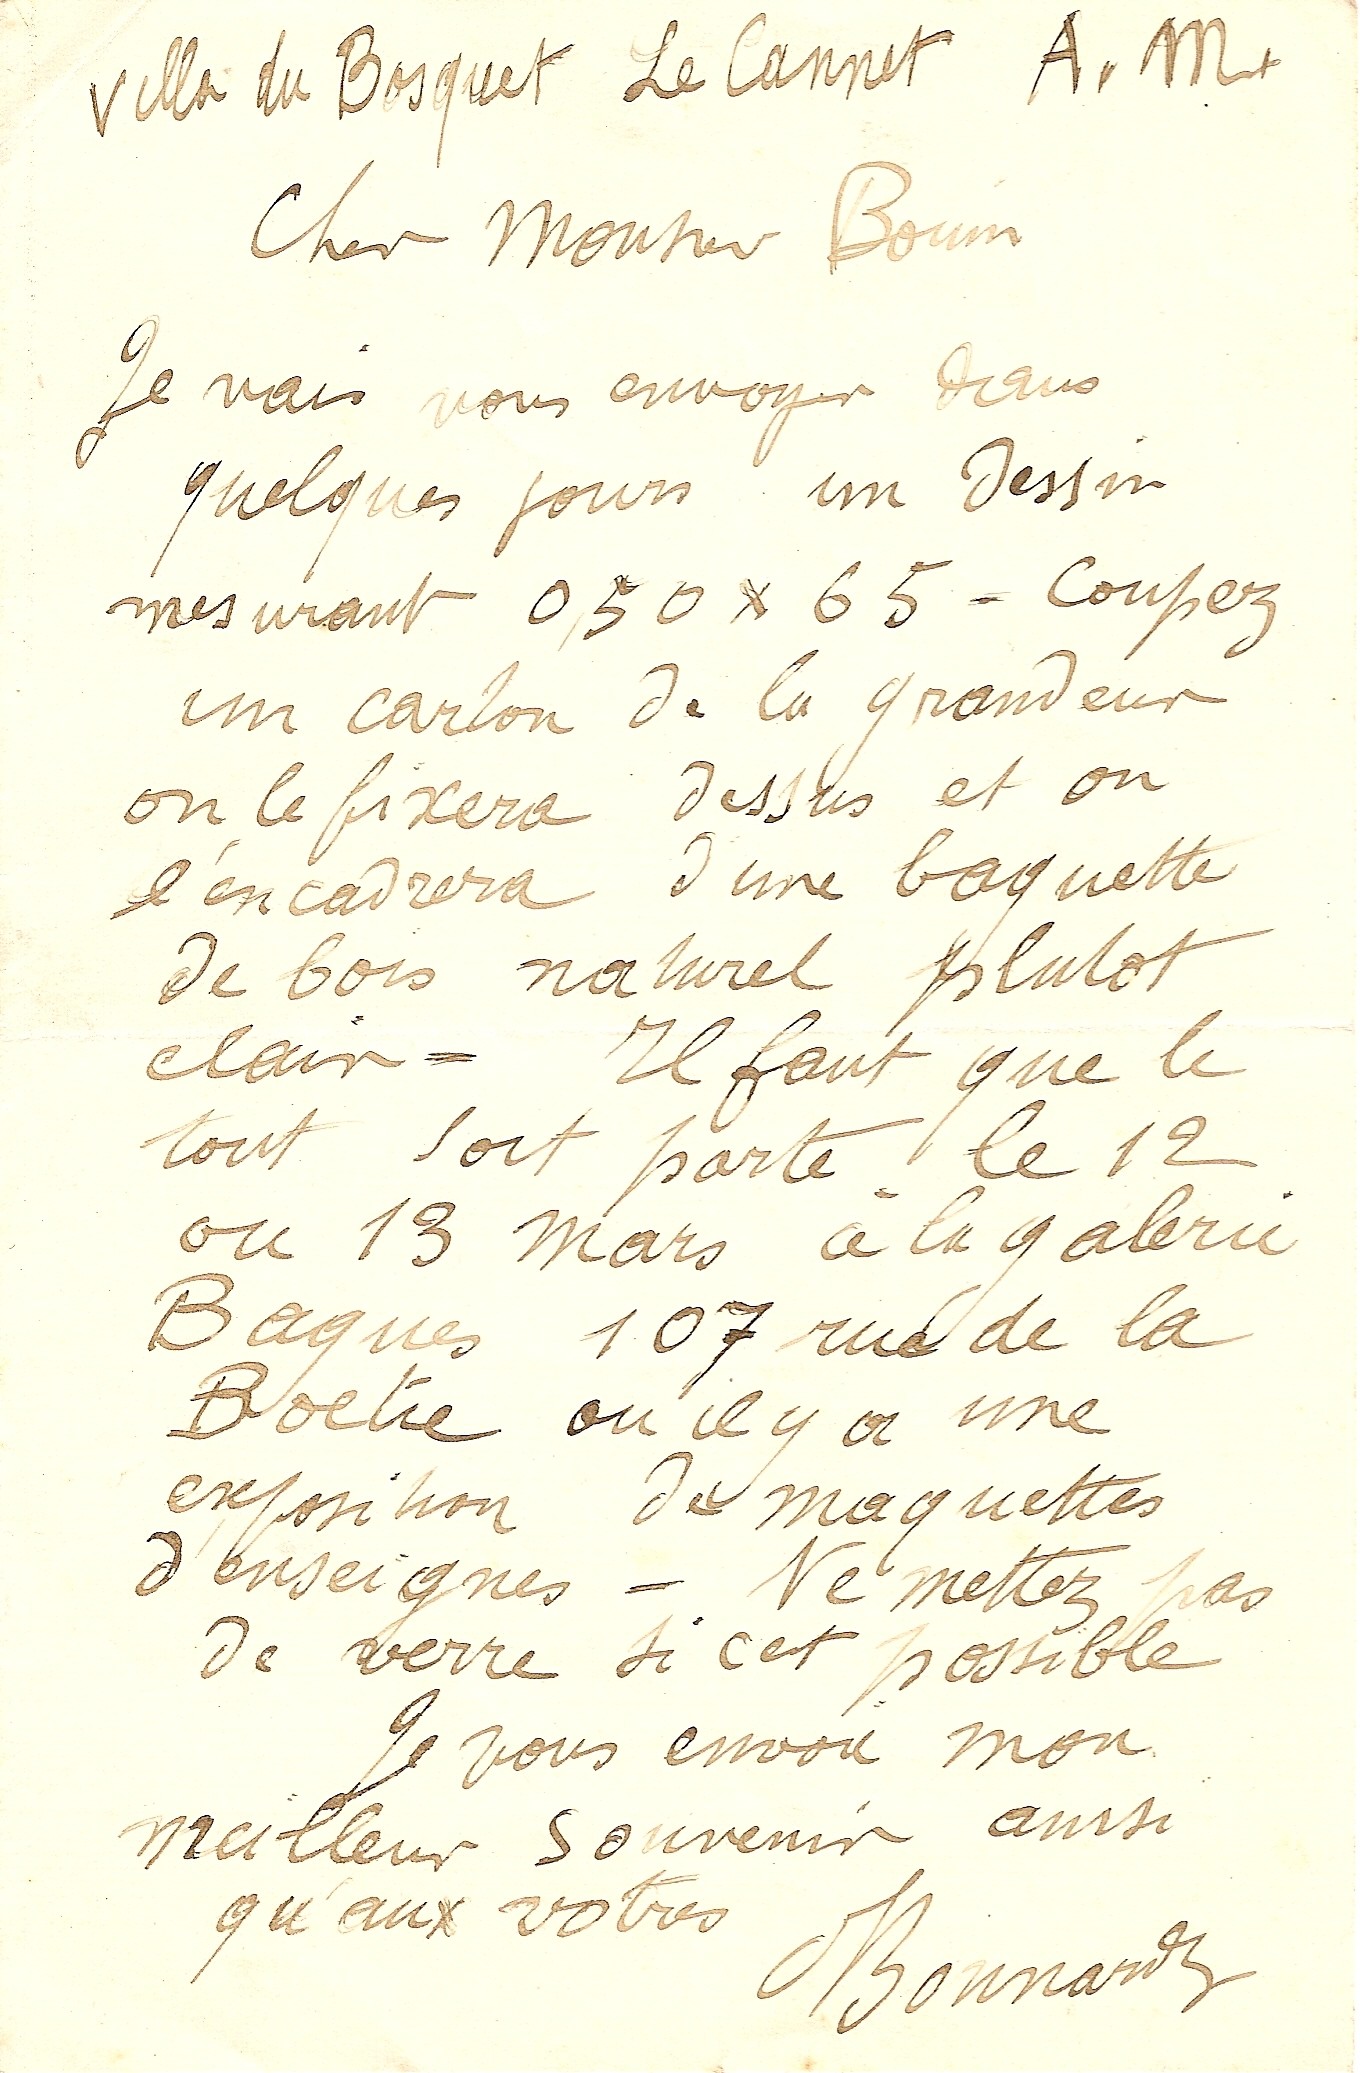 Villa du Bosquet Le Cannet A. M.
Cher Monsieur Bouin
Je vais vous envoyer dans
quelques jours un dessin
mesurant 0,50 x 65 - Coupez
un carton de la grandeur
on le fixera dessus et on
l'encadrera d'une baguette
de bois naturel plutot
clair = Il faut que le
tout soit porté le 12
ou 13 mars à la galerie
Bagues 107 rue de la
Boetie ou il y a une
exposition de maquettes
d'enseignes - Ne mettez pas
de verre si cet possible
Je vous envoie mon
meilleur souvenir ainsi
qu'aux votres
PBonnard